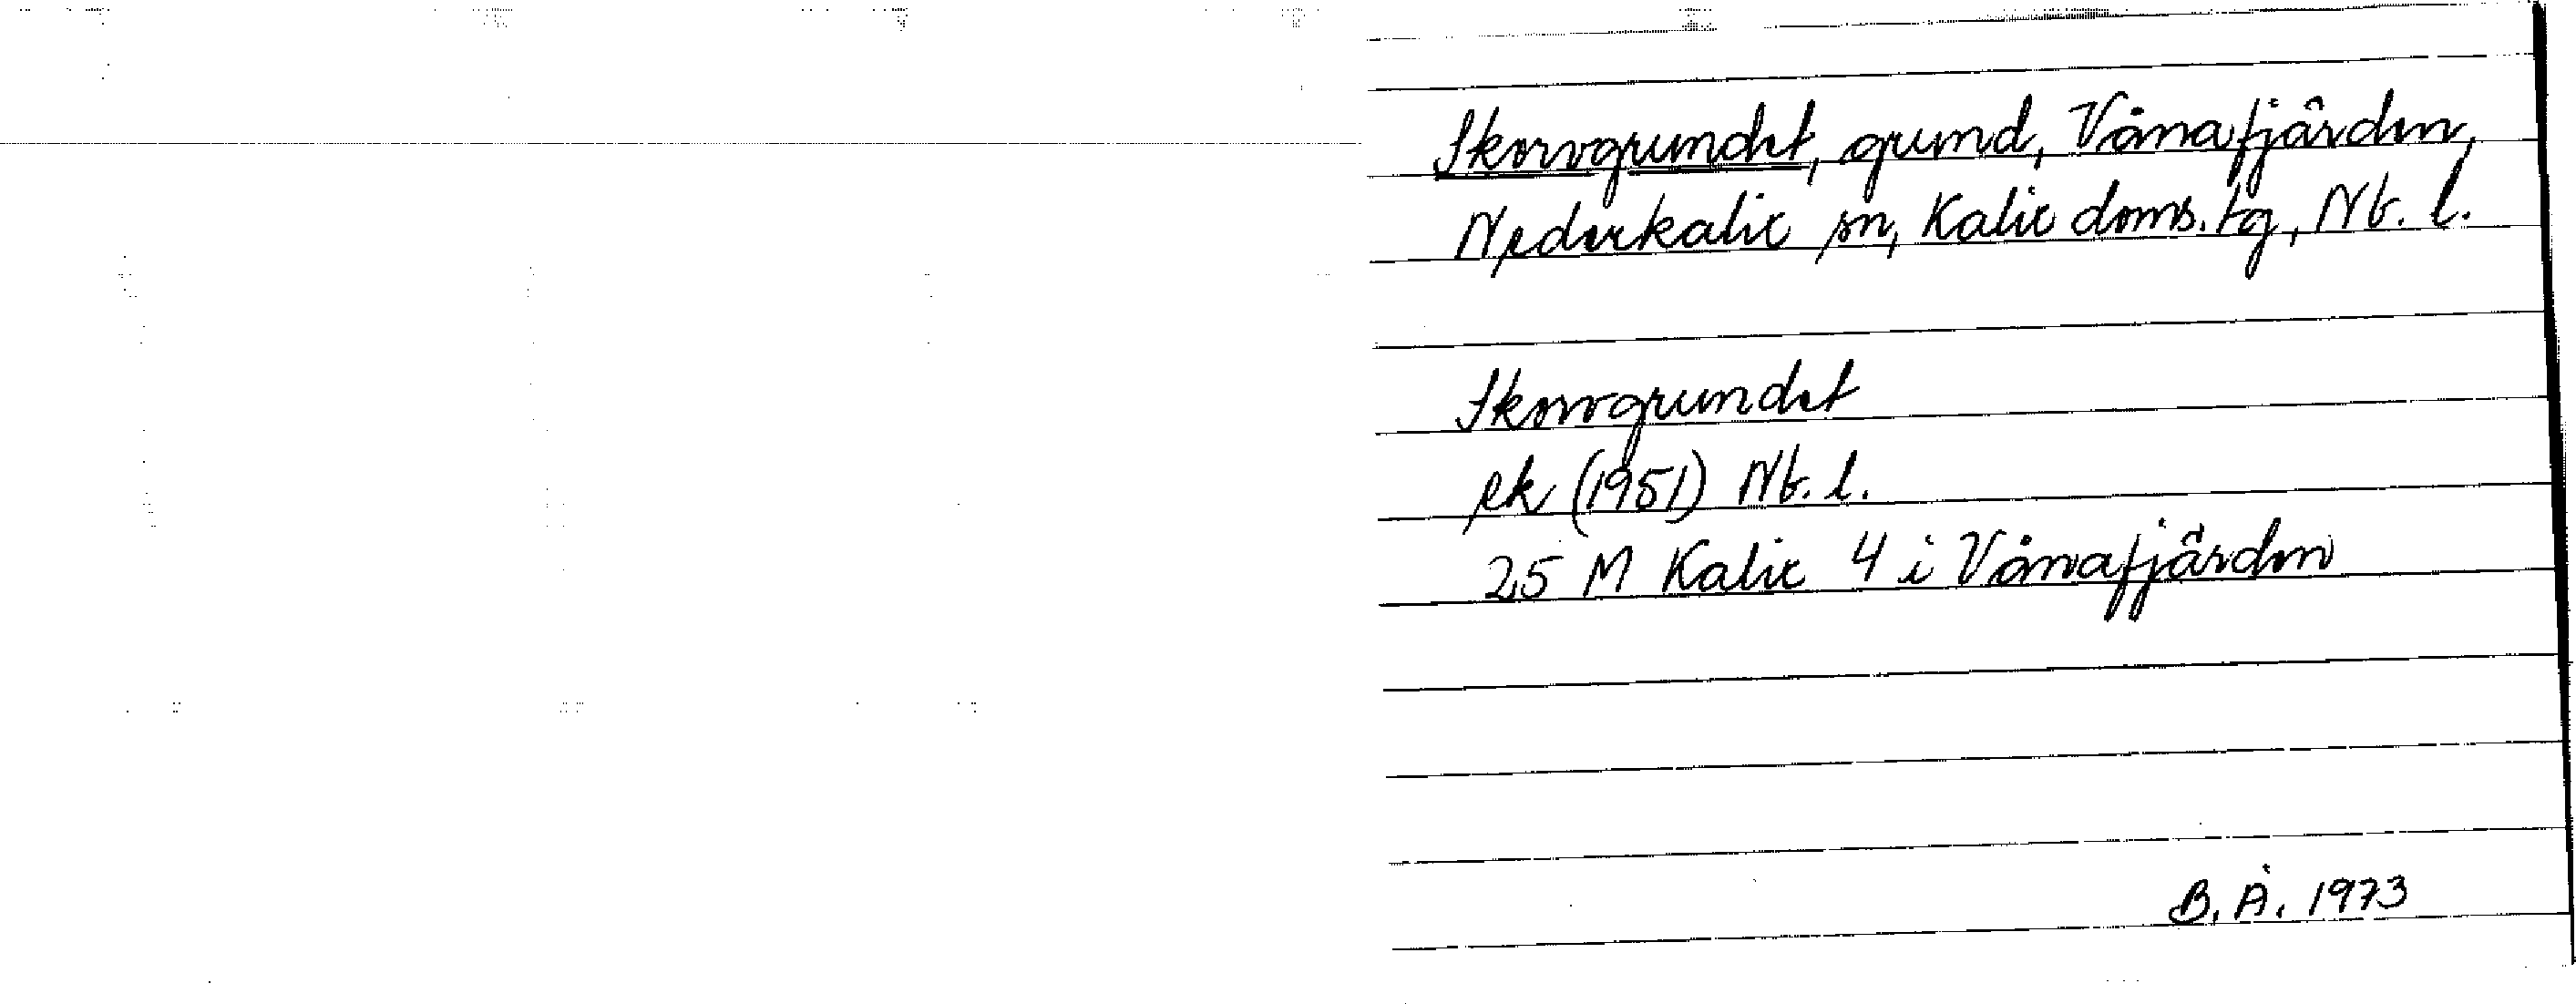 Skorvgrundet, grund, Vånafjärden,
Nederkalix sn, Kalix doms. tg, Nb. l.
Skorvgrundet
ek (1951) Nb. l.
25 M Kalix 4 i Vånafjärden
B. Å. 1973